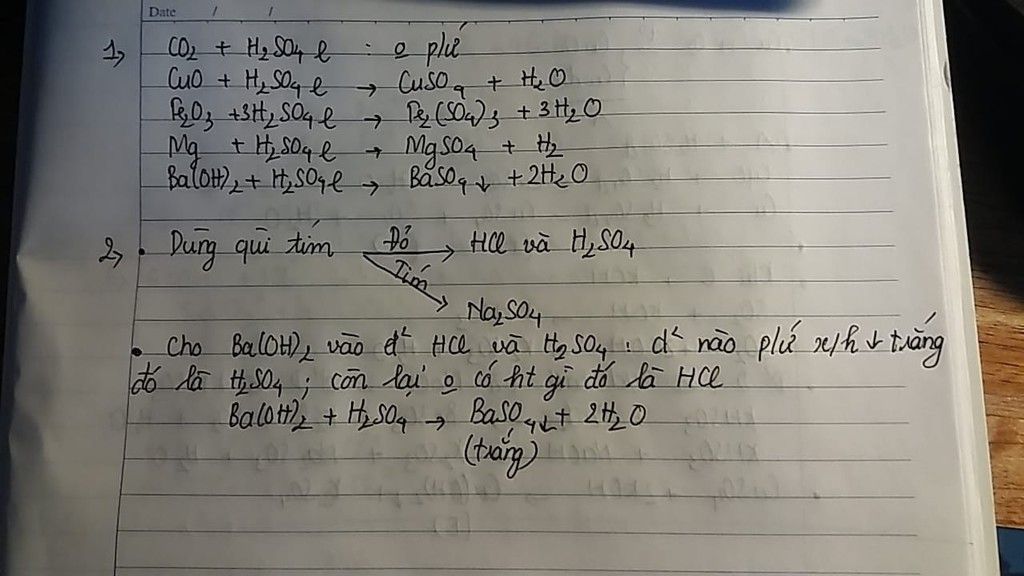 Date / /
1, CO2 + H2SO4 l : o pứ
CuO + H2SO4 l → CuSO4 + H2O
Fe2O3 +3H2SO4 l → Fe2(SO4)3 + 3H2O
Mg + H2SO4 l → MgSO4 + H2
Ba(OH)2 + H2SO4 l → BaSO4↓ + 2H2O
2, • Dùng quì tím Đỏ → HCl và H2SO4
Tím → Na2SO4
• Cho Ba(OH)2 vào d² HCl và H2SO4 : d² nào pứ x/h ↓ trắng
đó là H2SO4 ; còn lại o có ht gì đó là HCl
Ba(OH)2 + H2SO4 → BaSO4↓ + 2H2O
(trắng)